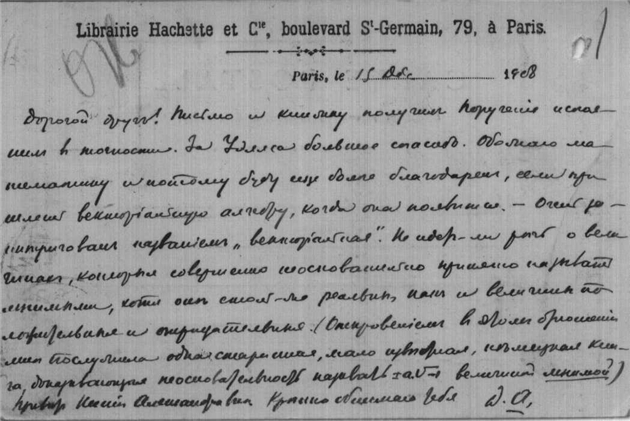 Librairie Hachette et Cie, boulevard St-Germain, 79, à Paris.
Paris, le 15 Дек 1908
Дорогой другъ! Письмо и книжку получилъ Порученіе испол-
нилъ в точности. За Уэлса большое спасибо. Обожаю ма-
тематику и поэтому буду еще более благодаренъ, если при-
шлешь векторіальную алгебру, когда она появится. – Очень за-
интригованъ названіемъ „векторіальная". Не идетъ-ли речь о вели-
чинахъ, которыя совершенно неосновательно принято называть
мнимыми, хотя они столь-же реальны, какъ и величины по-
ложительныя и отрицательныя. (Откровеніемъ в этомъ отношеніи
мне послужила одна старинная, мало известная, немецкая кни-
га, доказывающая неосновательность называть ±a√-1 величиной мнимой)
Привет Ксеніи Александровне Крепко обнимаю тебя